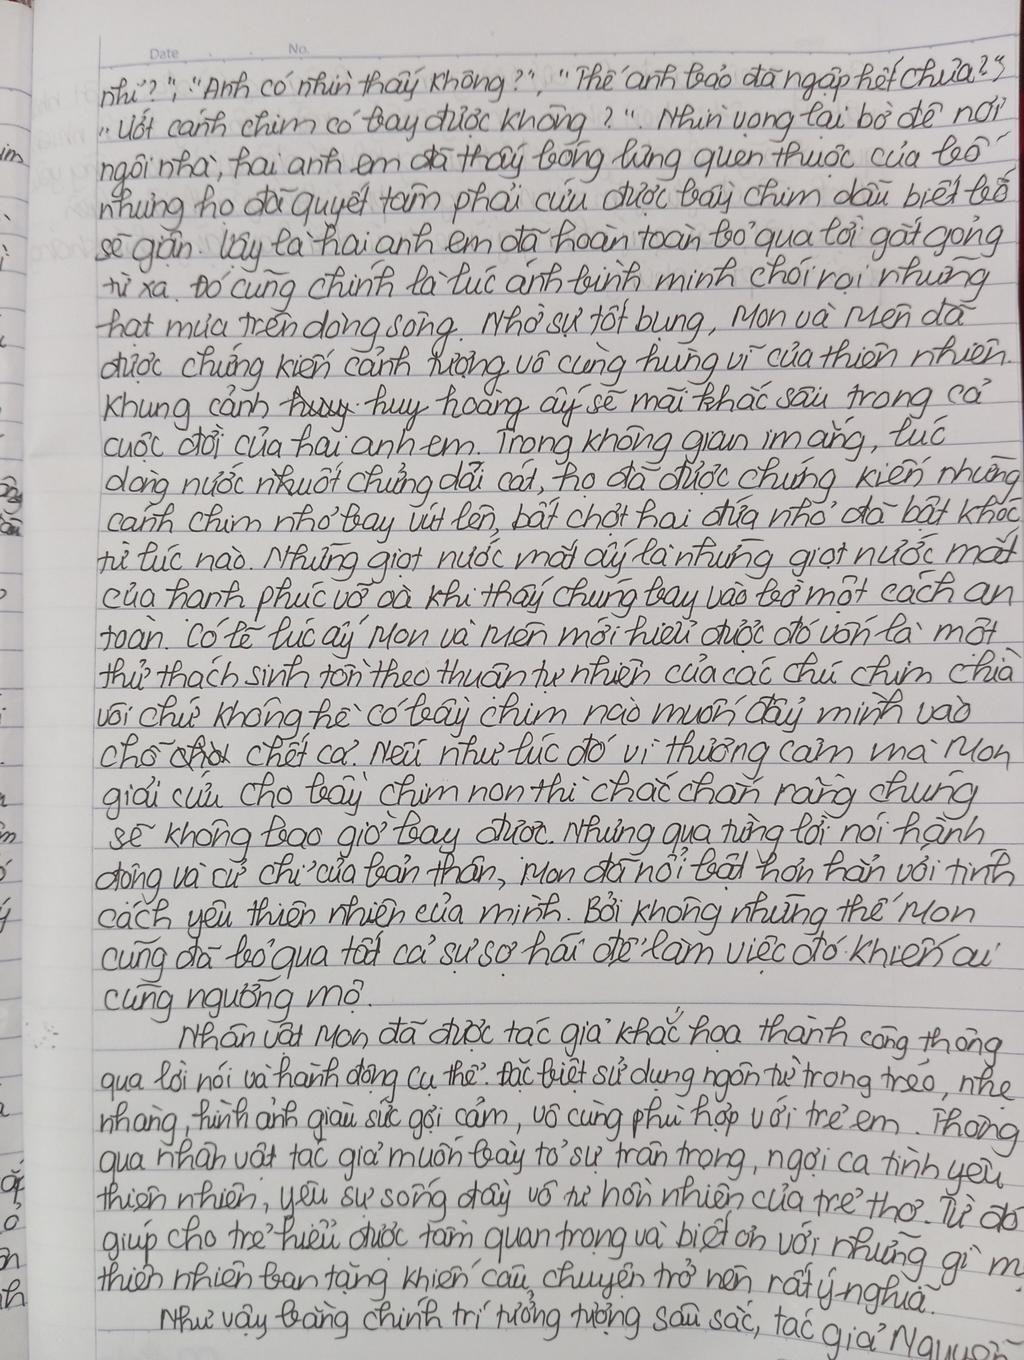 Date No.
nhỉ?", "Anh có nhìn thấy không?", "Thế anh bảo đã ngập hết chưa?"
"Ướt cánh chim có bay được không?". Nhìn vọng lại bờ đê nơi
ngôi nhà, hai anh em đã thấy bóng lưng quen thuộc của bố
nhưng họ đã quyết tâm phải cứu được bầy chim dẫu biết bố
sẽ giận. Vậy là hai anh em đã hoàn toàn bỏ qua lời gắt gỏng
từ xa. Đó cũng chính là lúc ánh bình minh chói rọi những
hạt mưa trên dòng sông. Nhờ sự tốt bụng, Mon và Mên đã
được chứng kiến cảnh tượng vô cùng hùng vĩ của thiên nhiên.
Khung cảnh huy hoàng ấy sẽ mãi khắc sâu trong cả
cuộc đời của hai anh em. Trong không gian im ắng, lúc
dòng nước nhuốt chửng dải cát, họ đã được chứng kiến những
cánh chim nhỏ bay vút lên, bất chợt hai đứa nhỏ đã bật khóc
từ lúc nào. Những giọt nước mắt ấy là những giọt nước mắt
của hạnh phúc vỡ oà khi thấy chúng bay vào bờ một cách an
toàn. Có lẽ lúc ấy Mon và Mên mới hiểu được đó vốn là một
thử thách sinh tồn theo thuận tự nhiên của các chú chim chìa
vôi chứ không hề có bầy chim nào muốn đẩy mình vào
chỗ chết cả. Nếu như lúc đó vì thương cảm mà Mon
giải cứu cho bầy chim non thì chắc chắn rằng chúng
sẽ không bao giờ bay được. Nhưng qua từng lời nói hành
động và cử chỉ của bản thân, Mon đã nổi bật hơn hẳn với tính
cách yêu thiên nhiên của mình. Bởi không những thế Mon
cũng đã bỏ qua tất cả sự sợ hãi để làm việc đó khiến ai
cũng ngưỡng mộ.
Nhân vật Mon đã được tác giả khắc họa thành công thông
qua lời nói và hành động cụ thể. Đặc biệt sử dụng ngôn từ trong trẻo, nhẹ
nhàng, hình ảnh giàu sức gợi cảm, vô cùng phù hợp với trẻ em. Thông
qua nhân vật tác giả muốn bày tỏ sự trân trọng, ngợi ca tình yêu
thiên nhiên, yêu sự sống đầy vô tư hồn nhiên của trẻ thơ. Từ đó
giúp cho trẻ hiểu được tầm quan trọng và biết ơn với những gì mà
thiên nhiên ban tặng khiến câu chuyện trở nên rất ý nghĩa.
Như vậy bằng chính trí tưởng tượng sâu sắc, tác giả Nguyễn